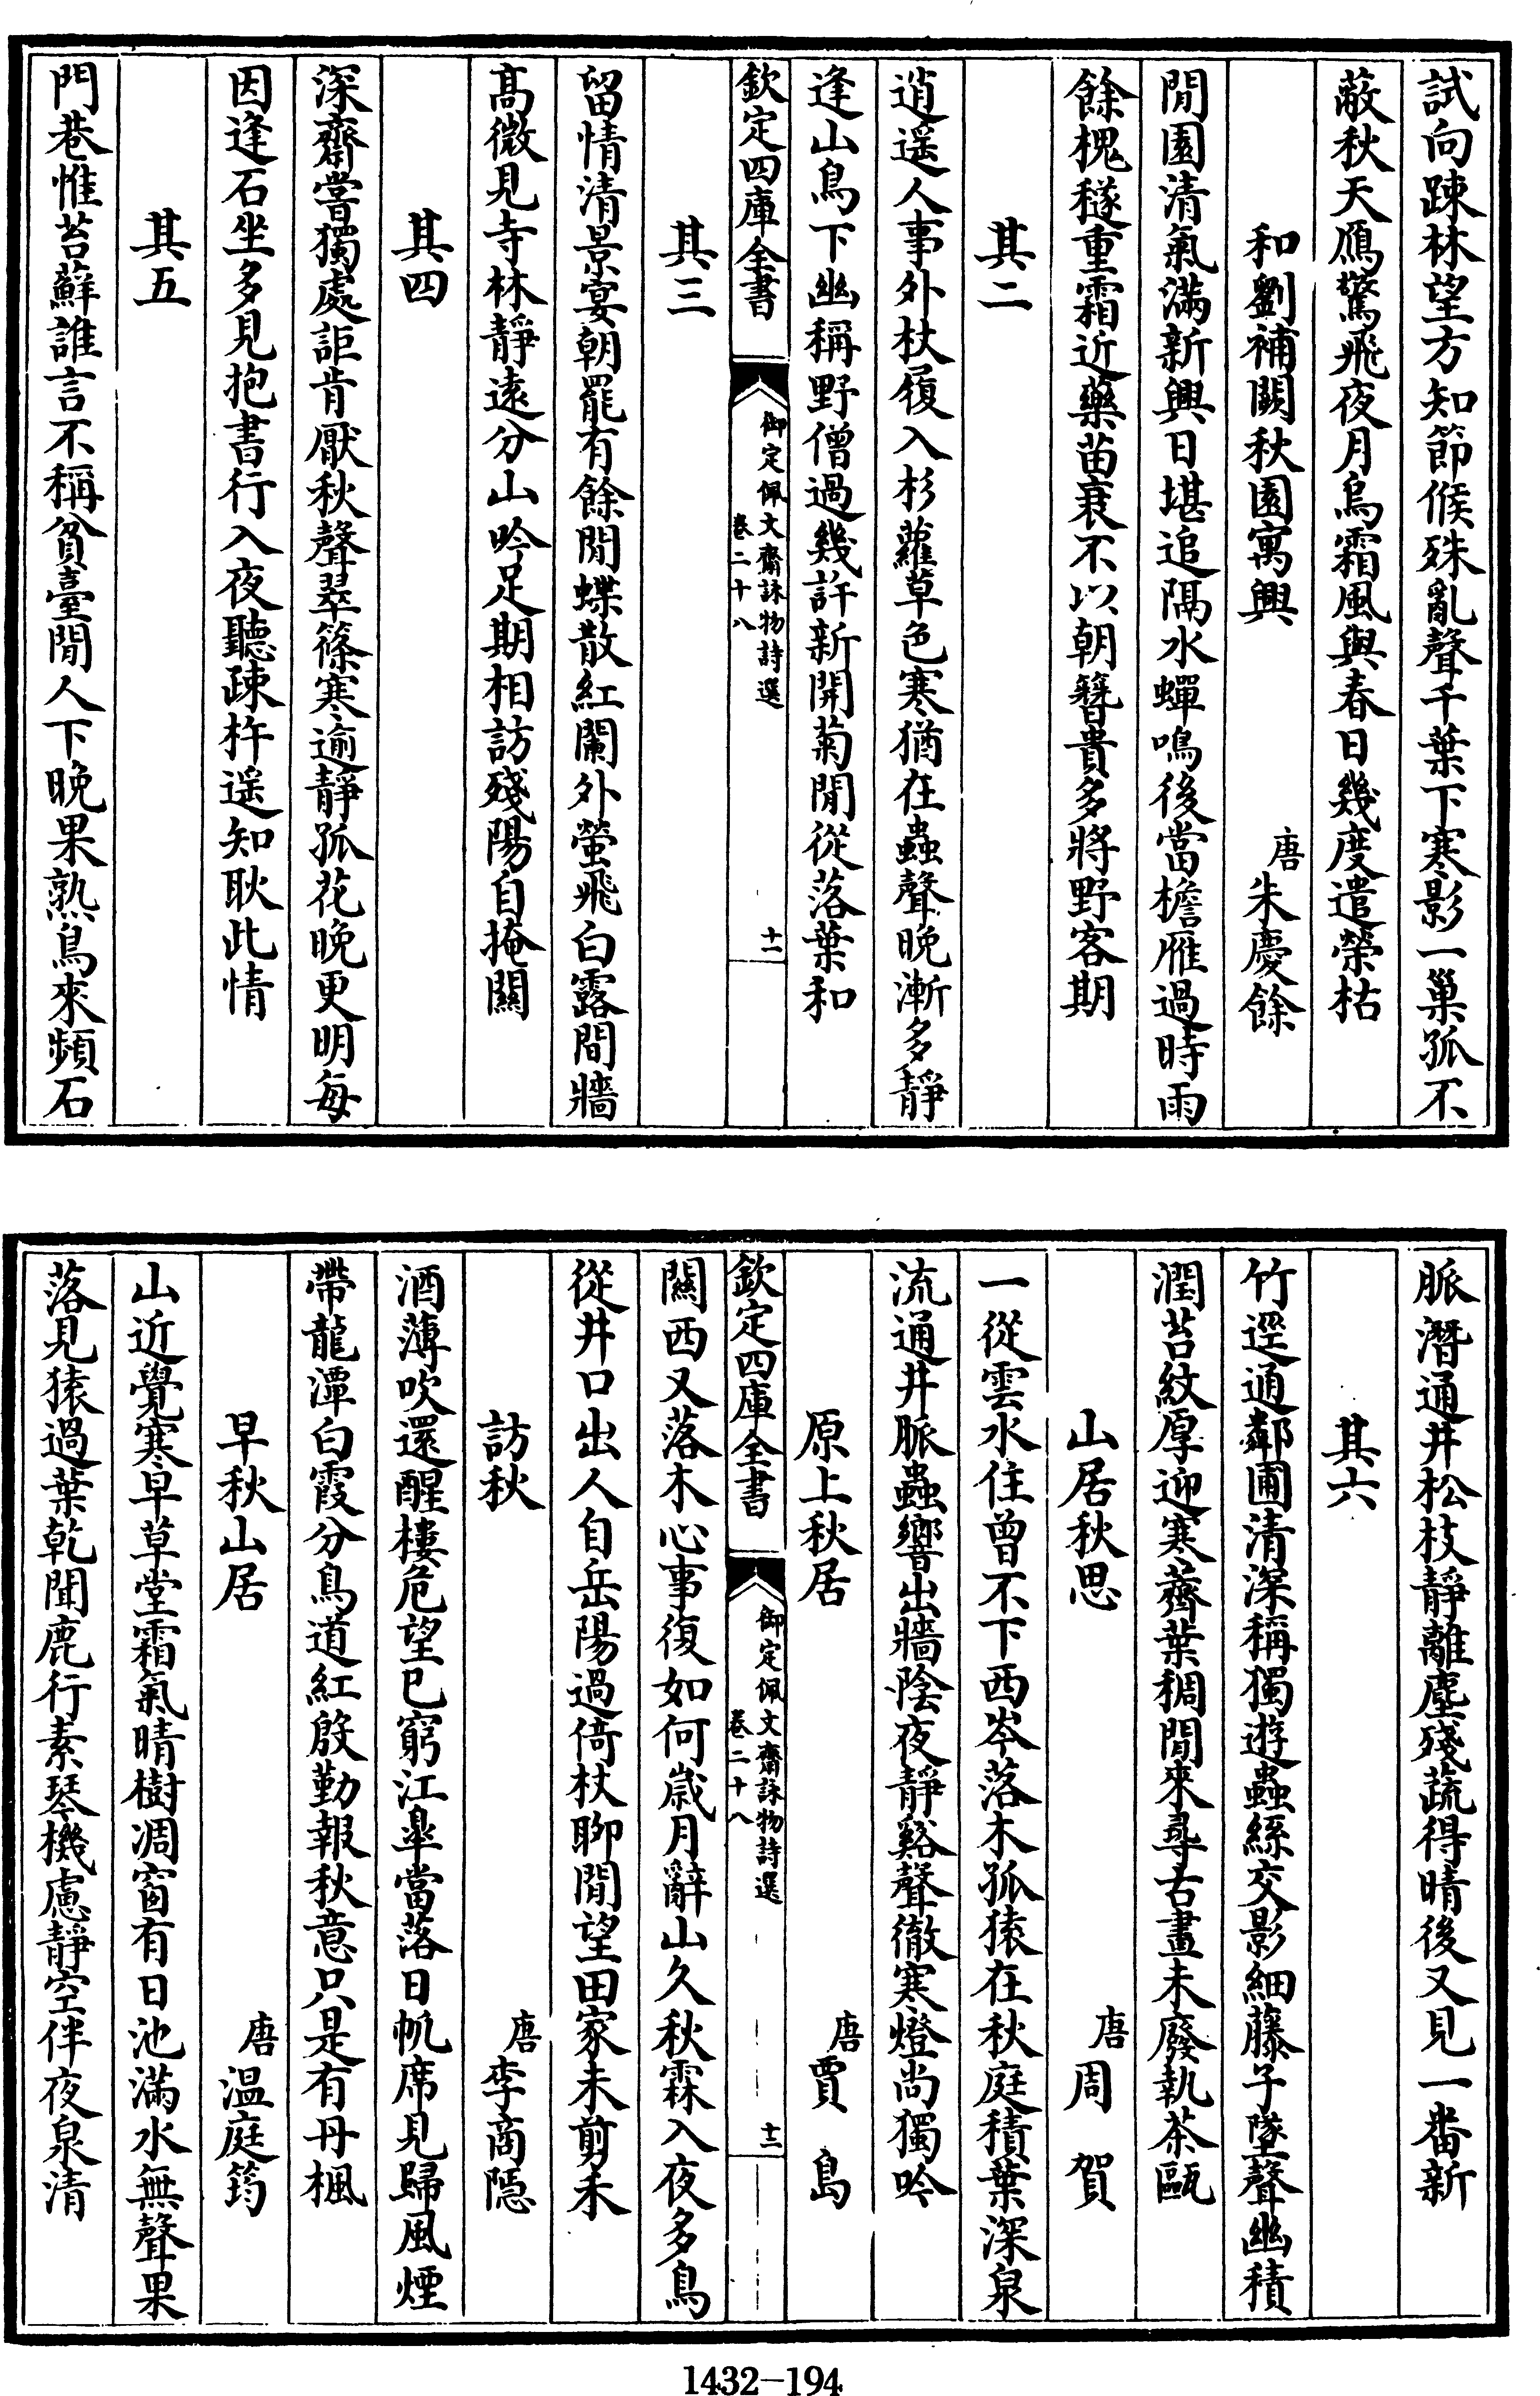 試向踈林望方知節候殊亂聲千葉下寒影一巢孤不
蔽秋天鴈驚飛夜月烏霜風與春日幾度遣榮枯
和劉補闕秋園寓興 唐 朱慶餘
閒園清氣滿新興日堪追隔水蟬鳴後當檐雁過時雨
餘槐穟重霜近藥苗衰不以朝簪貴多將野客期
其二
逍遥人事外杖履入杉蘿草色寒猶在蟲聲晚漸多靜
逢山鳥下幽稱野僧過幾許新開菊閒從落葉和
欽定四庫全書 御定佩文齋詠物詩選 卷二十八 十一
其三
留情清景宴朝罷有餘閒蝶散紅闌外螢飛白露間牆
髙微見寺林靜遠分山吟足期相訪殘陽自掩闗
其四
深齋嘗獨處詎肯厭秋聲翠篠寒逾靜孤花晚更明每
因逢石坐多見抱書行入夜聽踈杵遥知耿此情
其五
門巷惟苔蘚誰言不稱貧臺閒人下晚果熟鳥來頻石
脈潛通井松枝靜離塵殘蔬得晴後又見一番新
其六
竹逕通鄰圃清深稱獨遊蟲絲交影細藤子墜聲幽積
潤苔紋厚迎寒薺葉稠閒來尋古畫未廢執茶甌
山居秋思 唐 周賀
一從雲水住曾不下西岑落木孤猿在秋庭積葉深泉
流通井脈蟲響出牆陰夜靜谿聲徹寒燈尚獨吟
原上秋居 唐 賈島
欽定四庫全書 御定佩文齋詠物詩選 卷二十八 十二
闗西又落木心事復如何歲月辭山久秋霖入夜多鳥
從井口出人自岳陽過倚杖聊閒望田家未剪禾
訪秋 唐 李商隱
酒薄吹還醒樓危望已窮江臯當落日帆席見歸風煙
帶龍潭白霞分鳥道紅殷勤報秋意只是有丹楓
早秋山居 唐 温庭筠
山近覺寒早草堂霜氣晴樹凋窗有日池滿水無聲果
落見猿過葉乾聞鹿行素琴機慮靜空伴夜泉清
1432-194